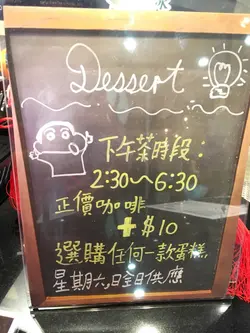 Dessert
下午茶時段：
2:30～6:30
正價咖啡
+$10
選購任何一款蛋糕
星期六日全日供應